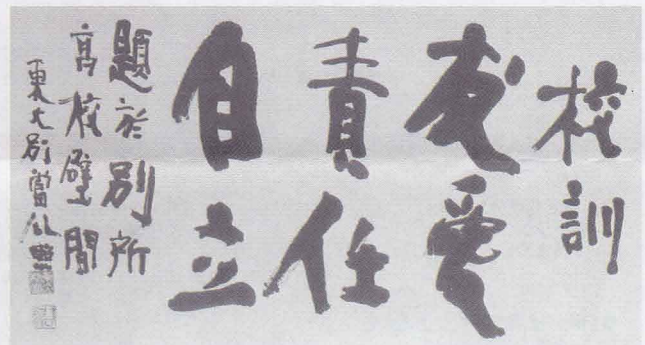 校訓
友愛
責任
自立
題於別所
高校壁間
東大別當公照